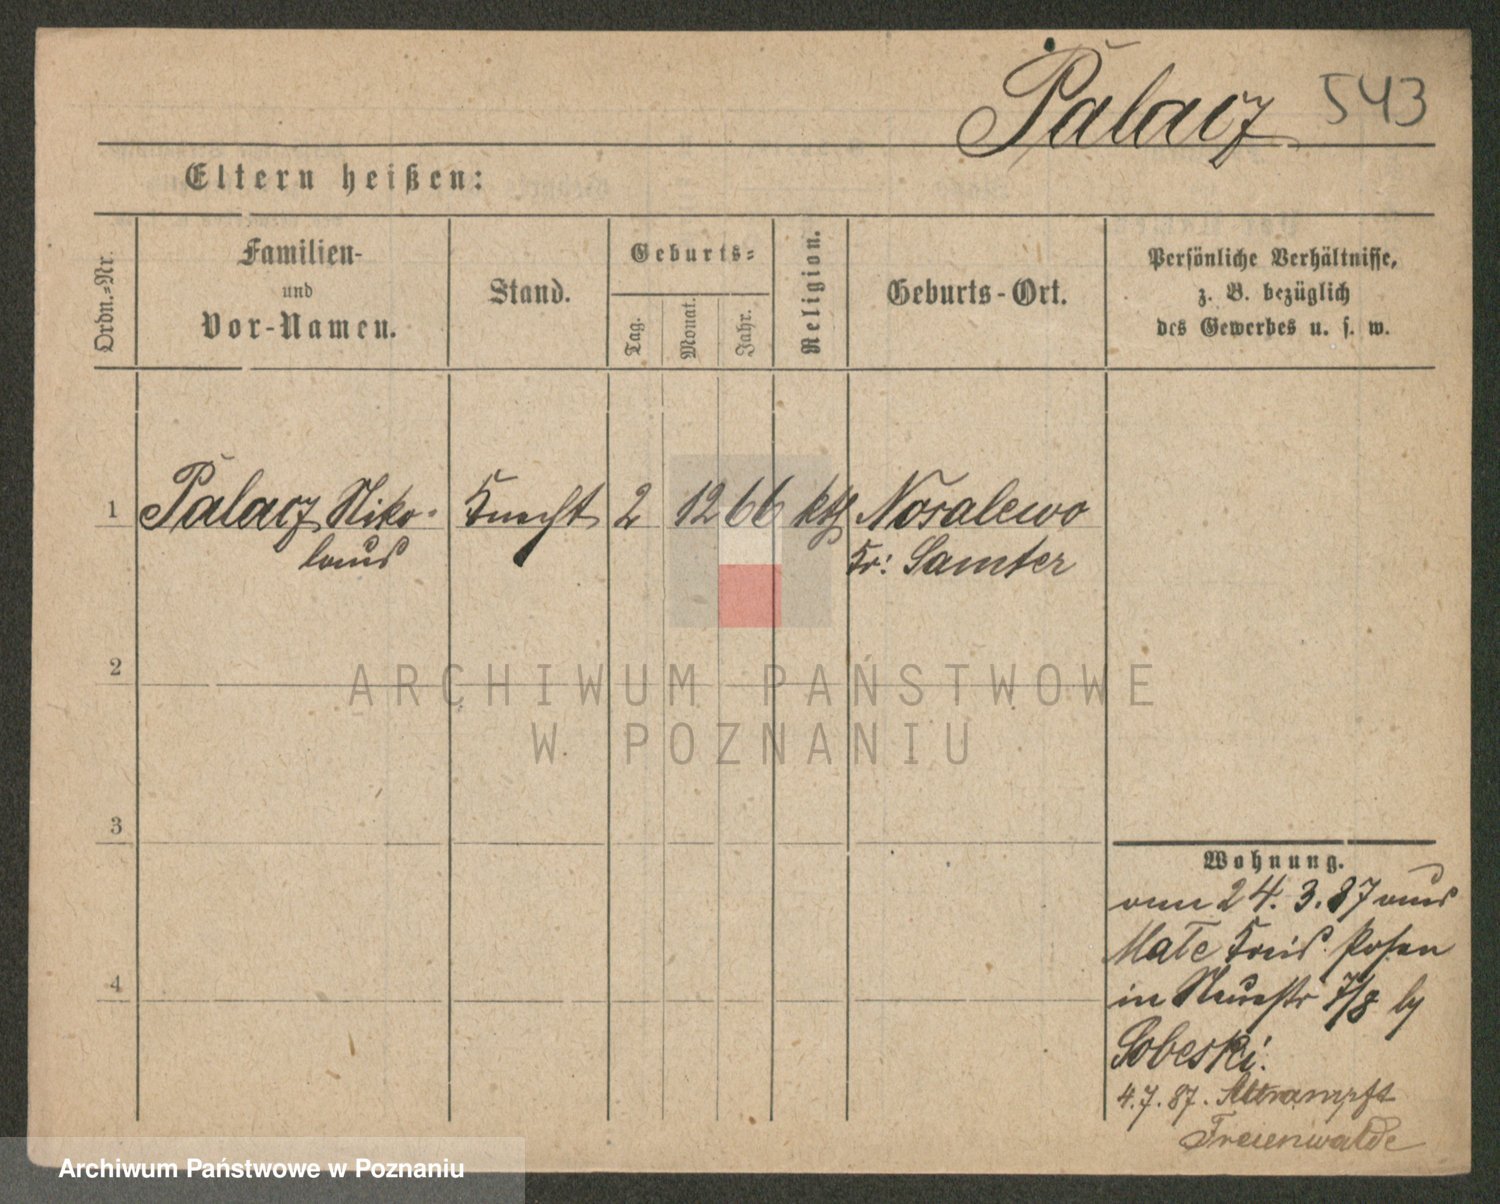 Palacz 543
Eltern heißen:
Ordn.=Nr.
Familien-
und
Vor-Namen.
Stand.
Geburts=
Tag.
Monat.
Jahr.
Religion.
Geburts-Ort.
Persönliche Verhältnisse,
z. B. bezüglich
des Gewerbes u. s. w.
1 Palacz Niko- Knecht 2 12 66 kth Nosalewo
laus Kr: Samter
2
ARCHIWUM PAŃSTWOWE
W POZNANIU
3
Wohnung.
am 24. 3. 87 aus
Kreis Posen
4
in Neuestr 7/8 by
Sobeski.
4.7.87. Altrampft
Freienwalde
Archiwum Państwowe w Poznaniu